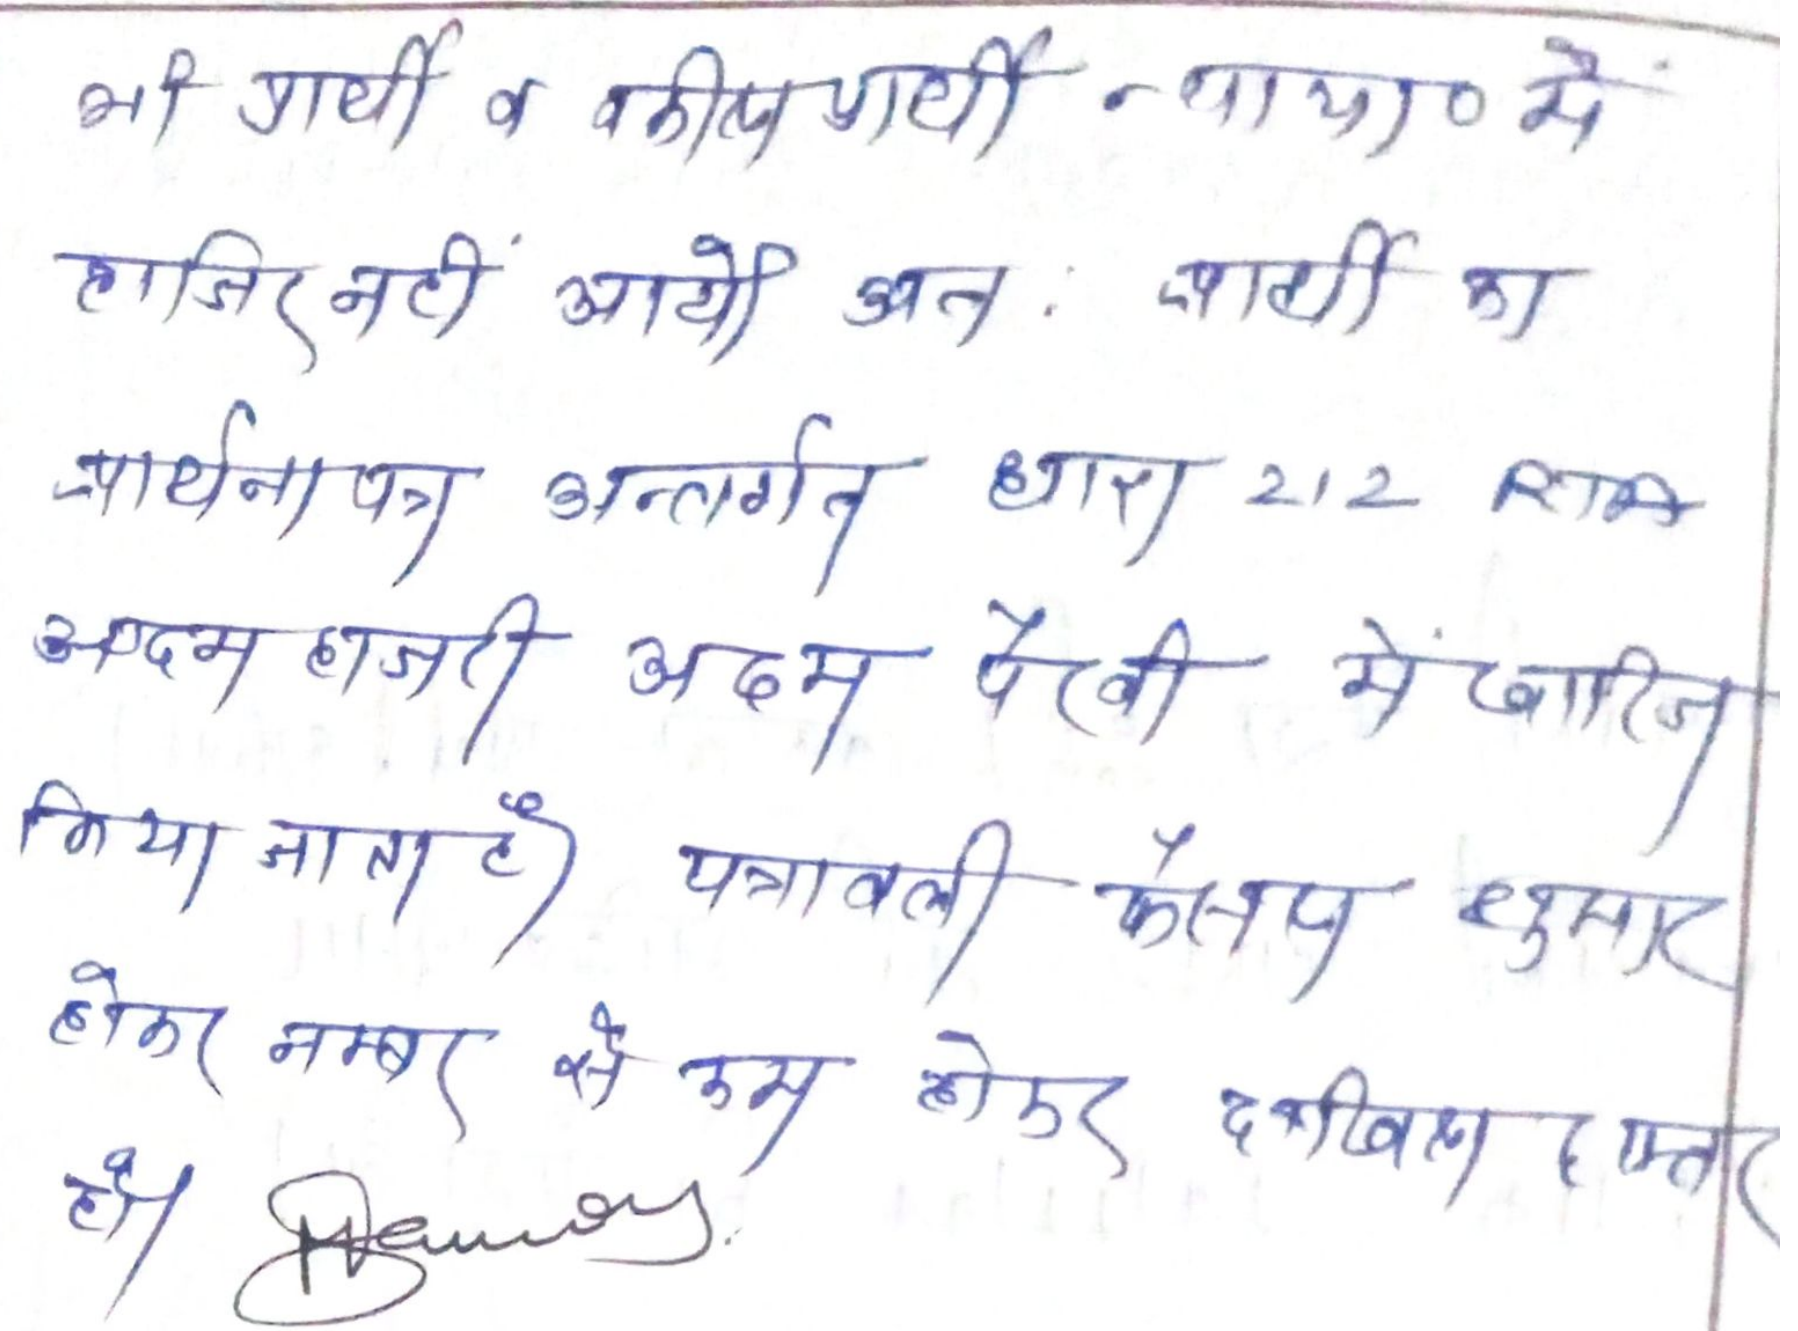 भी प्रार्थी व वकील प्रार्थी न्याया० में
हाजिर नहीं आये। अतः प्रार्थी का
प्रार्थना पत्र अन्तर्गत धारा 212
अदम हाजरी अदम पैरवी में खारिज
किया जाता है। पत्रावली फैसल शुमार
होकर नम्बर से कम होकर दाखिल दफ्तर
हो।